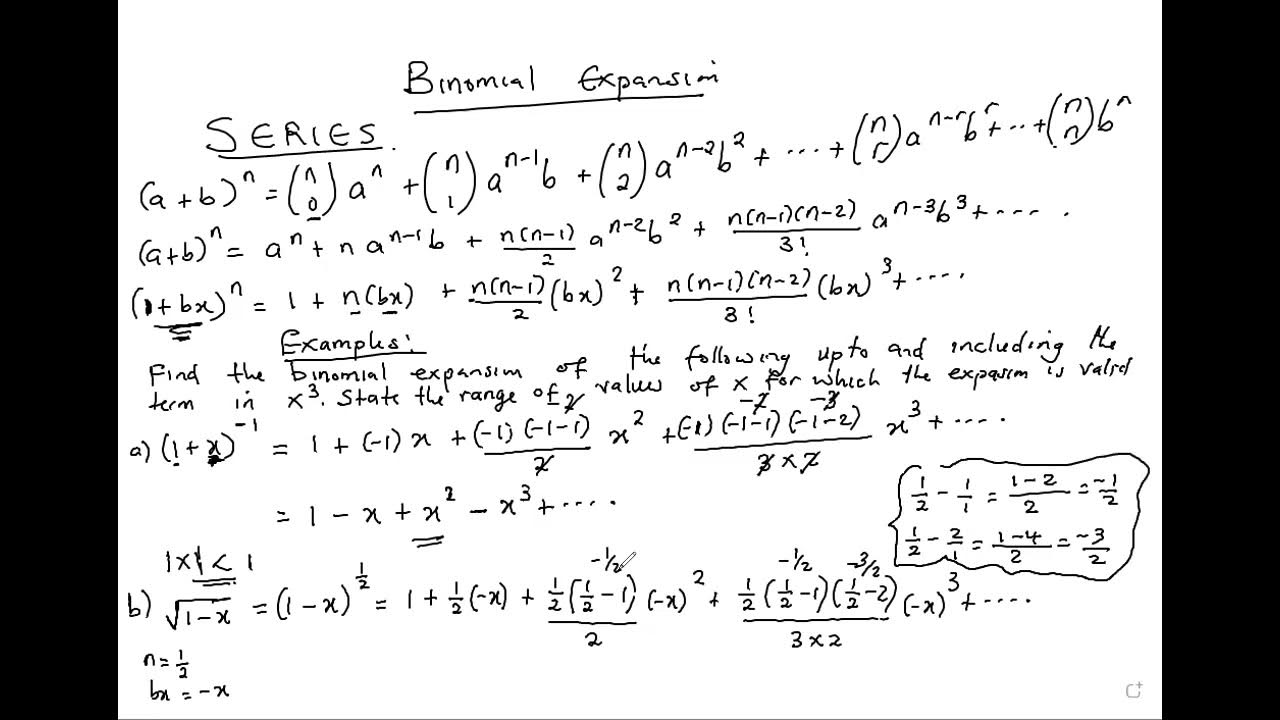 Binomial Expansion
SERIES.
(a+b)^n = (n 0) a^n + (n 1) a^{n-1}b + (n 2) a^{n-2}b^2 + ... + (n r) a^{n-r}b^r + ... + (n n) b^n
(a+b)^n = a^n + n a^{n-1}b + n(n-1)/2 a^{n-2}b^2 + n(n-1)(n-2)/3! a^{n-3}b^3 + .... .
(1+bx)^n = 1 + n(bx) + n(n-1)/2 (bx)^2 + n(n-1)(n-2)/3! (bx)^3 + ....
Examples:
Find the binomial expansion of the following upto and including the
term in x^3. State the range of values of x for which the expasion is valid
a) (1+x)^{-1} = 1 + (-1)x + (-1)(-1-1)/2 x^2 + (-1)(-1-1)(-1-2)/3×2 x^3 + ....
-2 -3
= 1 - x + x^2 - x^3 + ....
1/2 - 1/1 = 1-2/2 = -1/2
1/2 - 2/1 = 1-4/2 = -3/2
|x| < 1
b) √1-x = (1-x)^{1/2} = 1 + 1/2(-x) + 1/2(1/2-1)/2 (-x)^2 + 1/2(1/2-1)(1/2-2)/3×2 (-x)^3 + ....
-1/2 -1/2 -3/2
n = 1/2
bx = -x